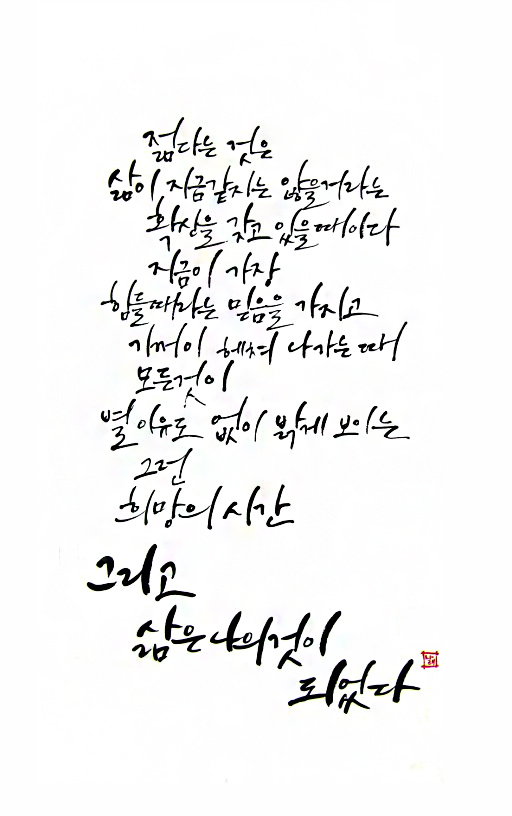 젊다는 것은
삶이 지금같지는 않을거라는
확신을 갖고 있을때이다
지금이 가장
힘들때라는 믿음을 가지고
기꺼이 헤쳐 나가는 때
모든것이
별 이유도 없이 밝게 보이는
그런
희망의 시간
그리고
삶은 나의것이
되었다